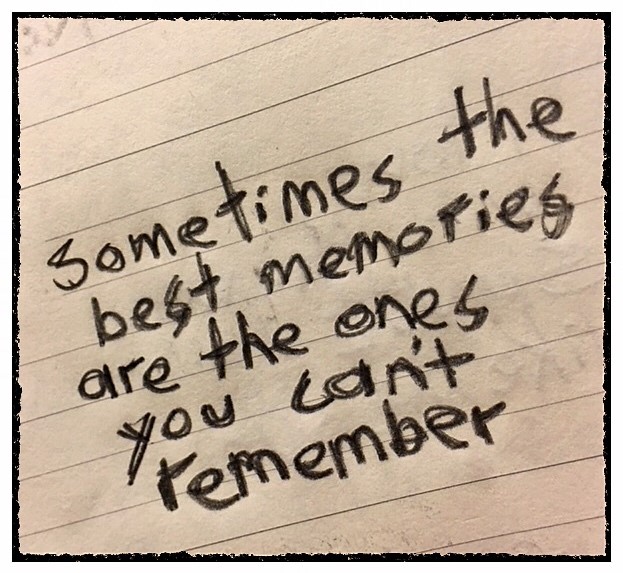 sometimes the
best memories
are the ones
you can't
remember